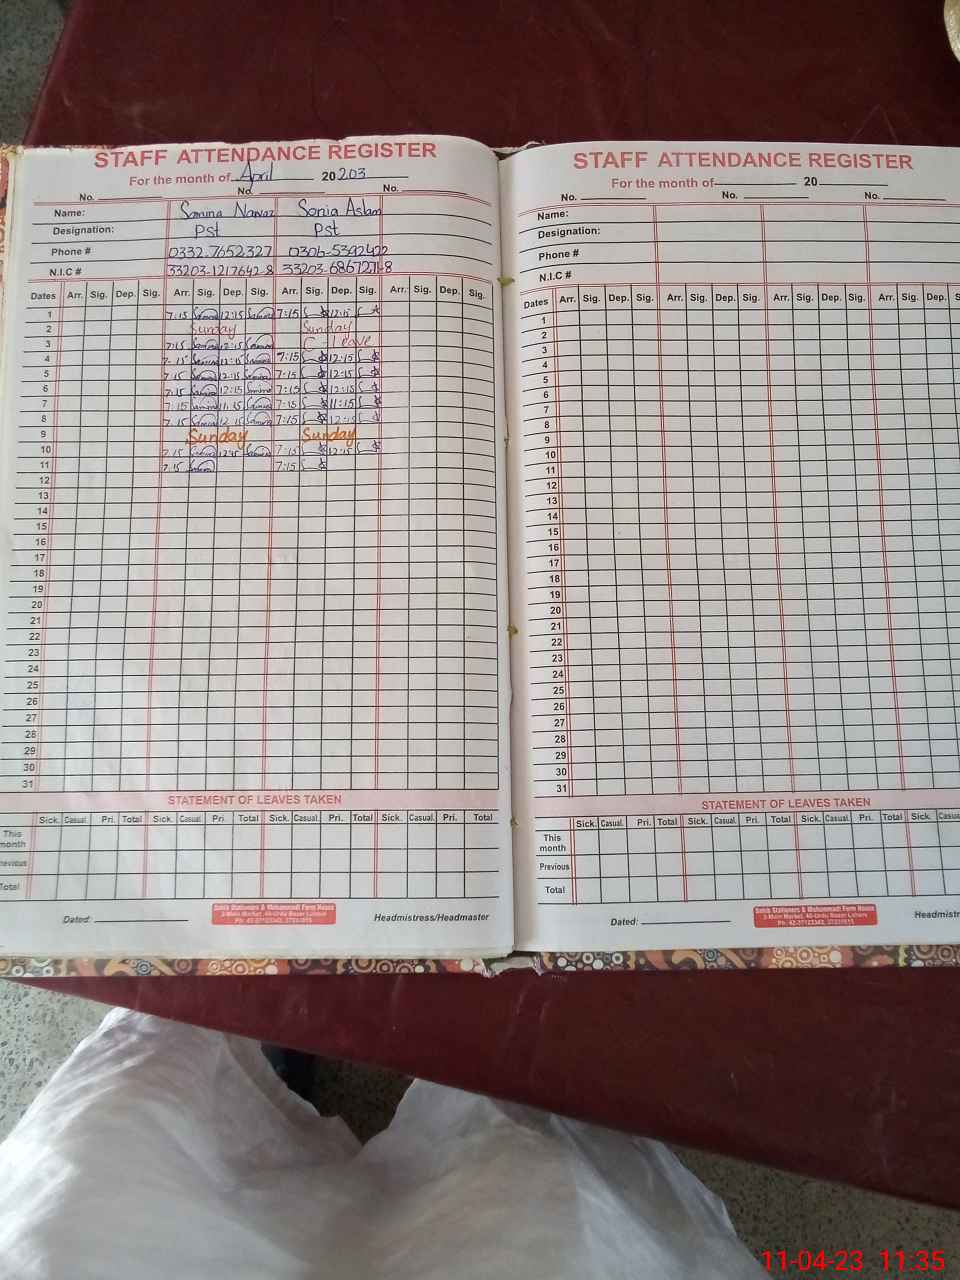 STAFF ATTENDANCE REGISTER
For the month of April 20 203
No. No. No.
Name: Samina Nawaz Sonia Aslam
Designation: Pst Pst
Phone # 0332-7652327 0306-5392422
N.I.C # 33203-1217642-8 33203-6867271-8
Dates Arr. Sig. Dep. Sig. Arr. Sig. Dep. Sig. Arr. Sig. Dep. Sig. Arr. Sig. Dep. Sig.
1 7:15 12:15 7:15 12:15
2 Sunday Sunday
3 7:15 12:15 C-Leave
4 7:15 12:15 7:15 12:15
5 7:15 12:15 7:15 12:15
6 7:15 12:15 7:15 12:15
7 7:15 11:15 7:15 11:15
8 7:15 12:15 7:15 12:15
9 Sunday Sunday
10 7:15 12:15 7:15 12:15
11 7:15 7:15
12
13
14
15
16
17
18
19
20
21
22
23
24
25
26
27
28
29
30
31
STATEMENT OF LEAVES TAKEN
Sick. Casual. Pri. Total Sick. Casual. Pri. Total Sick. Casual. Pri. Total Sick. Casual. Pri. Total
This month
Previous
Total
Dated: Headmistress/Headmaster
STAFF ATTENDANCE REGISTER
For the month of 20
No. No. No.
Name:
Designation:
Phone #
N.I.C #
Dates Arr. Sig. Dep. Sig. Arr. Sig. Dep. Sig. Arr. Sig. Dep. Sig. Arr. Sig. Dep.
1
2
3
4
5
6
7
8
9
10
11
12
13
14
15
16
17
18
19
20
21
22
23
24
25
26
27
28
29
30
31
STATEMENT OF LEAVES TAKEN
Sick. Casual. Pri. Total Sick. Casual. Pri. Total Sick. Casual. Pri. Total Sick.
This month
Previous
Total
Dated:
11-04-23 11:35